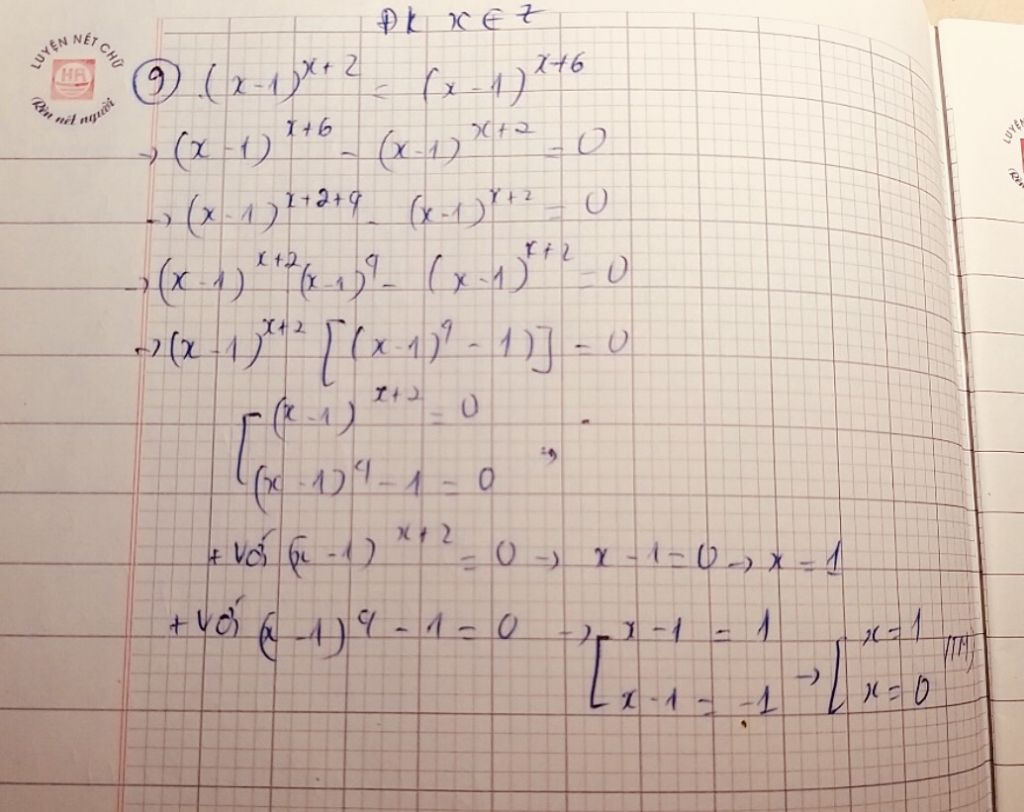 ĐK x ∈ Z
LUYỆN NÉT CHỮ
HR
Rèn nết người
9) (x-1)^{x+2} = (x-1)^{x+6}
→ (x-1)^{x+6} - (x-1)^{x+2} = 0
→ (x-1)^{x+2+4} - (x-1)^{x+2} = 0
→ (x-1)^{x+2} (x-1)^4 - (x-1)^{x+2} = 0
→ (x-1)^{x+2} [(x-1)^4 - 1)] = 0
[ (x-1)^{x+2} = 0
(x-1)^4 - 1 = 0 →
+ Với (x-1)^{x+2} = 0 → x-1=0 → x=1
+ Với (x-1)^4 - 1 = 0 → [ x-1 = 1 → [ x=1 (TM)
x-1 = -1 x=0